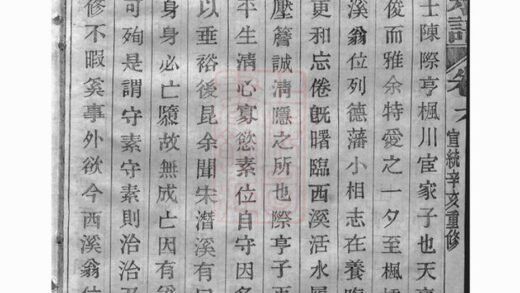 譜 卷 宣統辛亥重修
士陳際亨楓川宦家子也天
俊而雅余特愛之一夕至楓
溪翁位列德藩小相志在養
更 忘倦旣曙臨西溪活水
壓簷誠清隱之所也際亨子
平生清心寡慾素位自守因
以垂裕後昆余聞宋潛溪有
身身必亡隳故無成亡因有
可殉是謂守素守素則治治
修不暇奚事外欲今西溪翁位